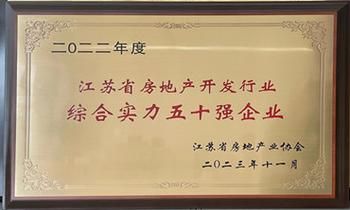 二〇二二年度
江苏省房地产开发行业
综合实力五十强企业
江苏省房地产业协会
二〇二三年十一月